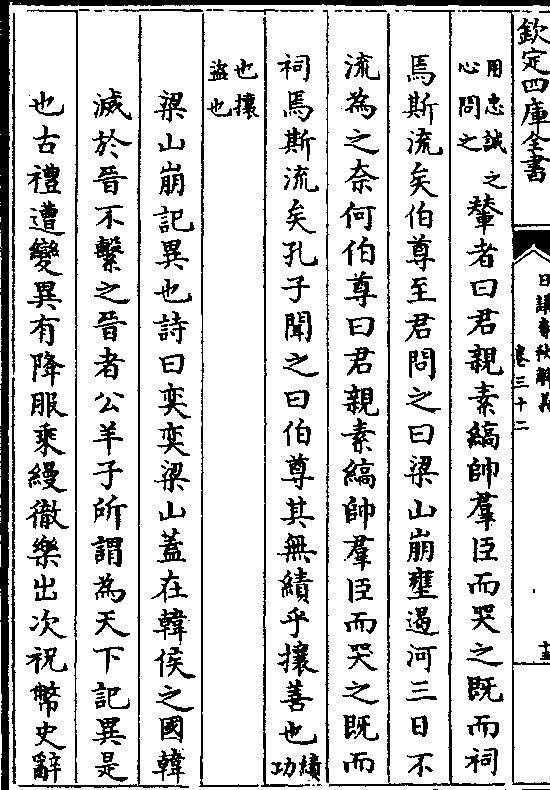 欽定四庫全書
日講春秋解義
卷三十二
用忠誠之
心問之
輦者曰君親素縞帥羣臣而哭之既而祠
焉斯流矣伯尊至君問之曰梁山崩壅遏河三日不
流為之奈何伯尊曰君親素縞帥羣臣而哭之既而
祠焉斯流矣孔子聞之曰伯尊其無績乎攘善也
績功
也攘
盜也
梁山崩記異也詩曰奕奕梁山蓋在韓侯之國韓
滅於晉不繫之晉者公羊子所謂為天下記異是
也古禮遭變異有降服乘縵徹樂出次祝幣史辭